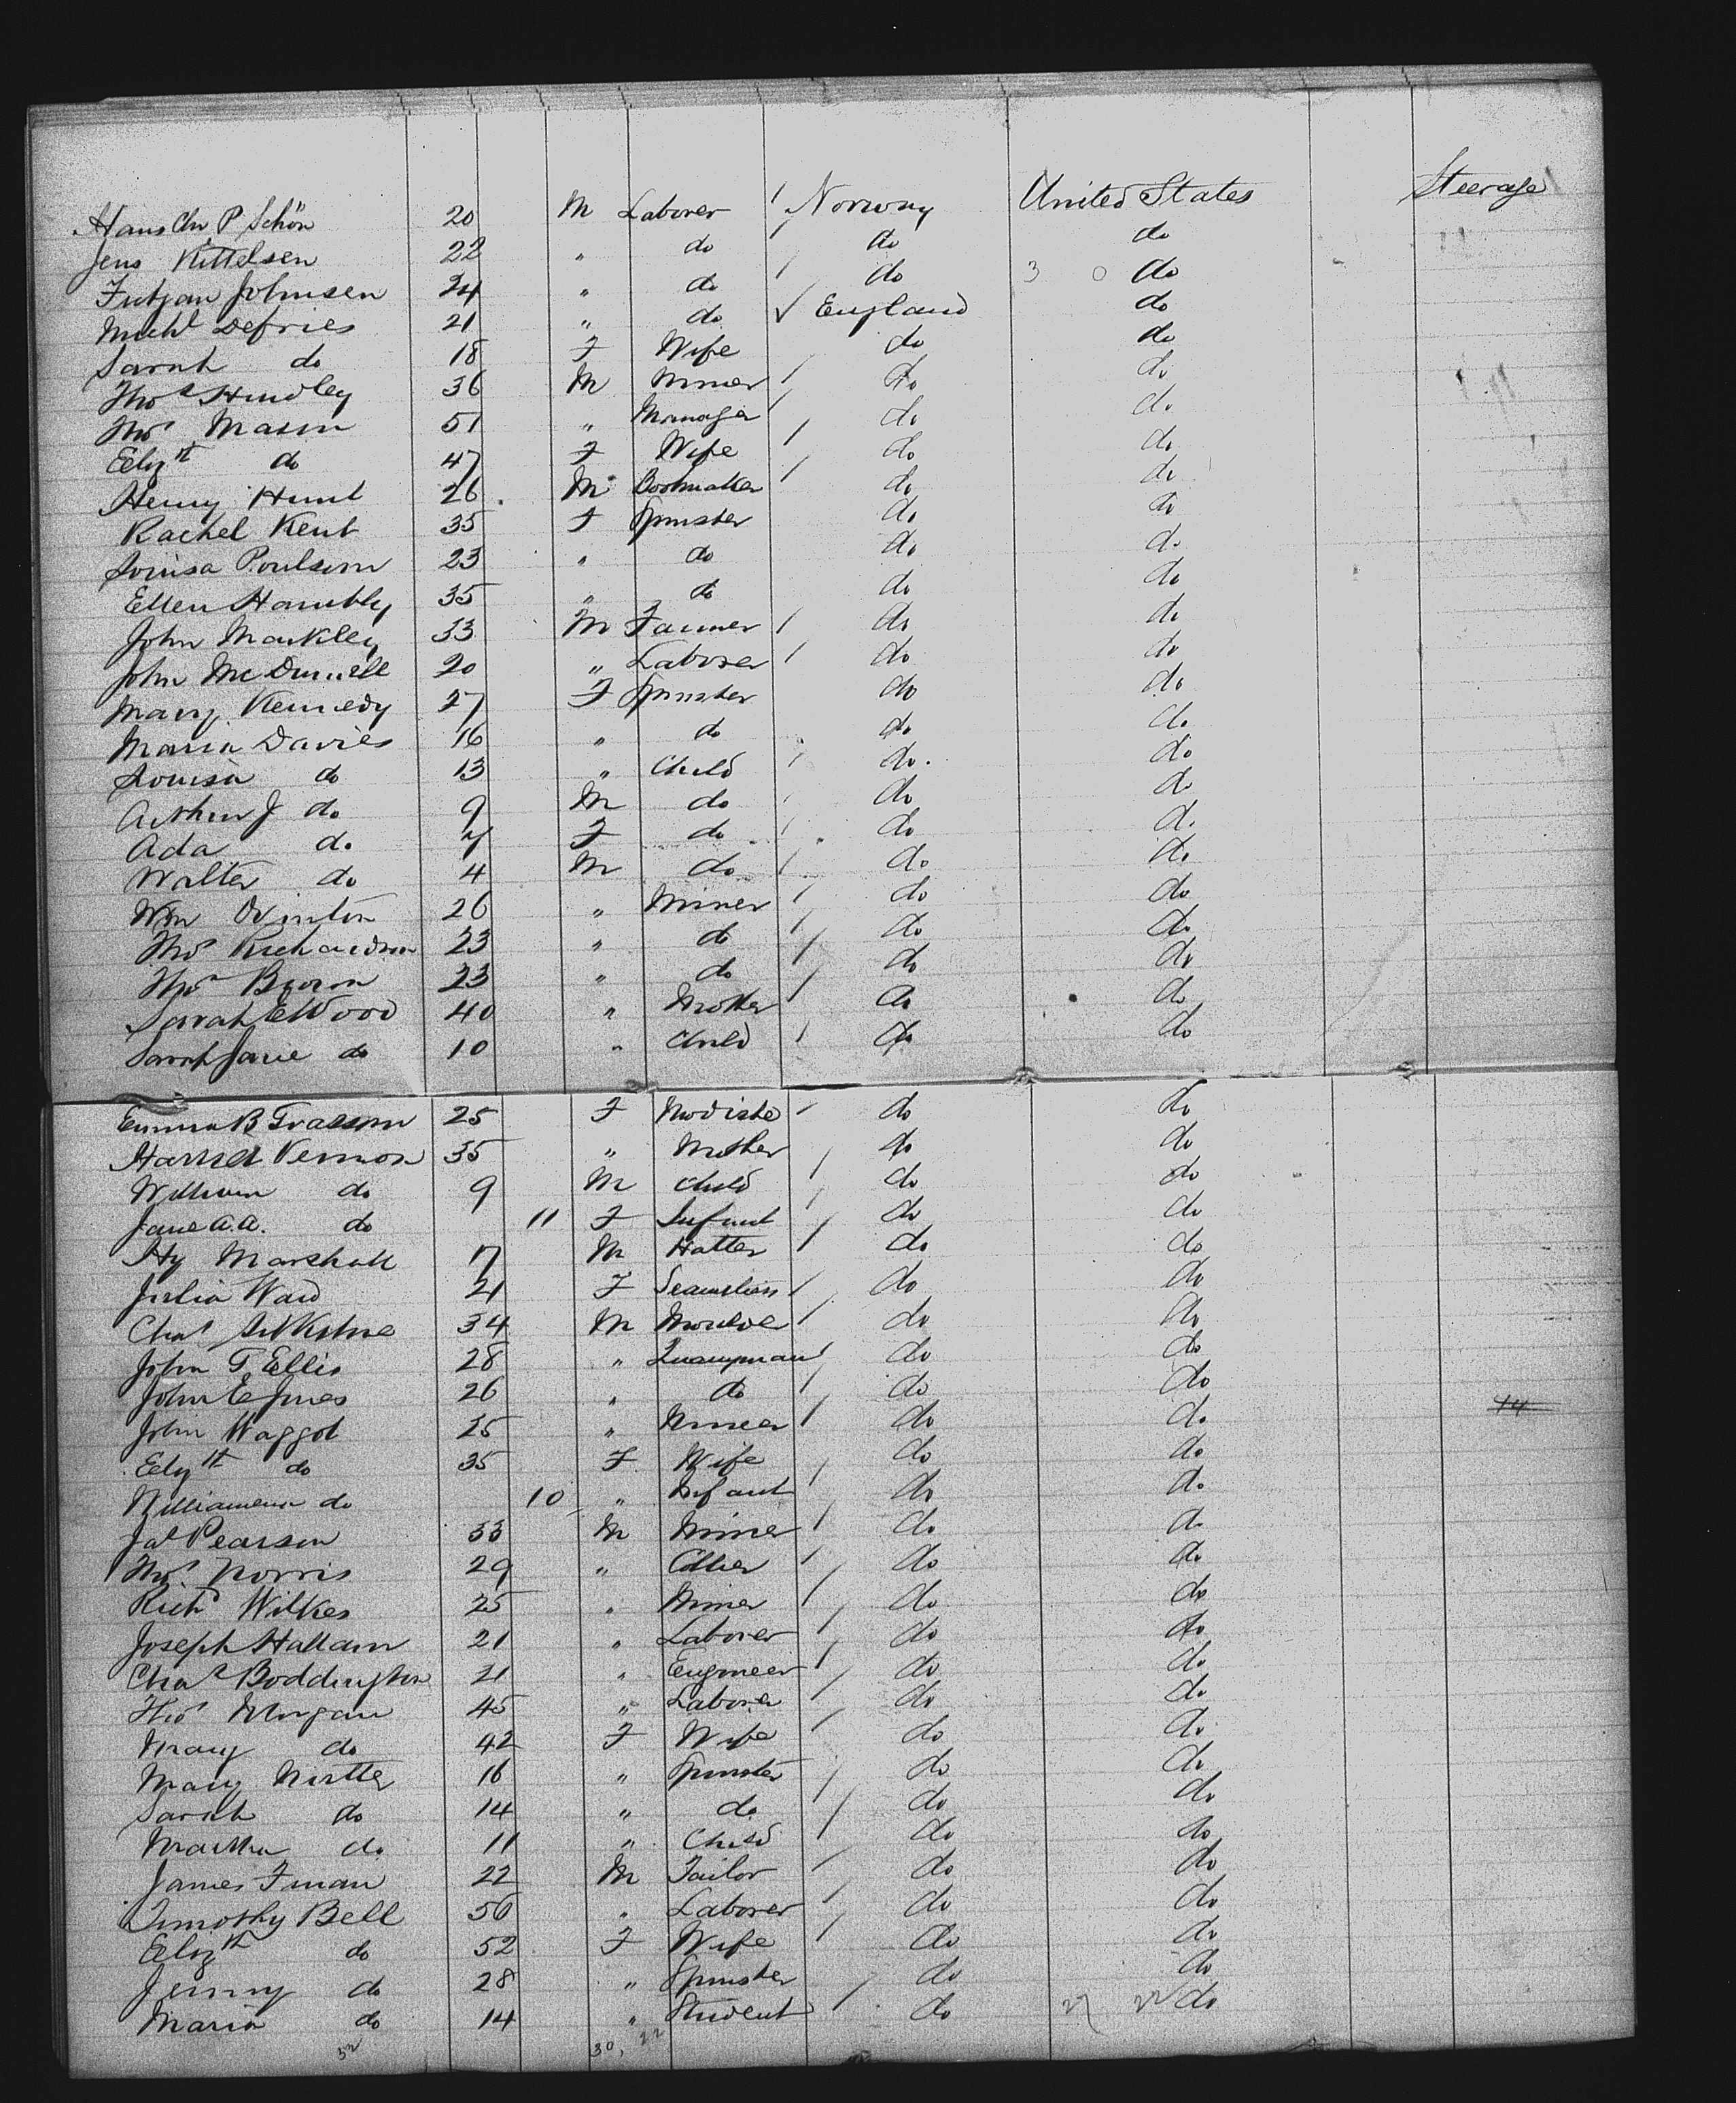 Hans Chr P Schön 20 M Laborer Norway United States Steerage
Jens Kittelsen 22 " do do do
Johnsen 24 " do do 3 0 do
Michl Defries 21 " do ✓ England do
Sarah do 18 F Wife do do
Thos Hindley 36 M Miner do do
Thos Mason 51 " Manager do do
Elizth do 47 F Wife do do
Henry Hunt 26 M Bootmaker do do
Rachel Kent 35 F Spinster do do
Louisa Poulsom 23 " do do do
Ellen Hambly 35 " do do do
John Markley 33 M Farmer do do
John McDonnell 20 " Laborer do do
Mary Kennedy 27 F Spinster do do
Maria Davies 16 " do do do
Louisa do 13 " Child do do
Arthur J do 9 M do do do
Ada do 7 F do do do
Walter do 4 M do do do
Wm 26 " Miner do do
Thos Richardson 23 " do do do
Thos Byron 23 " do do do
Sarah E Wood 40 " Mother do do
Sarah Jane do 10 " Child do do
Emma B 25 F Modiste do do
Harriet Vernon 35 " Mother do do
William do 9 M Child do do
Jane A.A. do 11 F Infant do do
Hy Marshall 17 M Hatter do do
Julia Ward 21 F Seamstress do do
Chas Silkstone 34 M Moulder do do
John T Ellis 28 " Quarryman do do
John E Jones 26 " do do do
John Waggot 25 " Miner do do 14
Elizth do 35 F Wife do do
Williamena do 10 " Infant do do
Jas Pearson 33 M Miner do do
Thos Norris 29 " Collier do do
Richd Wilkes 25 " Miner do do
Joseph Hallam 21 " Laborer do do
Chas Boddington 21 " Engineer do do
Thos Morgan 45 " Laborer do do
Mary do 42 F Wife do do
Mary 16 " Spinster do do
Sarah do 14 " do do do
Martha do 11 " Child do do
James Finan 22 M Tailor do do
Timothy Bell 56 " Laborer do do
Elizth do 52 F Wife do do
Jenny do 28 " Spinster do do
Maria do 14 " Student do 27 22 do
52 30, 22